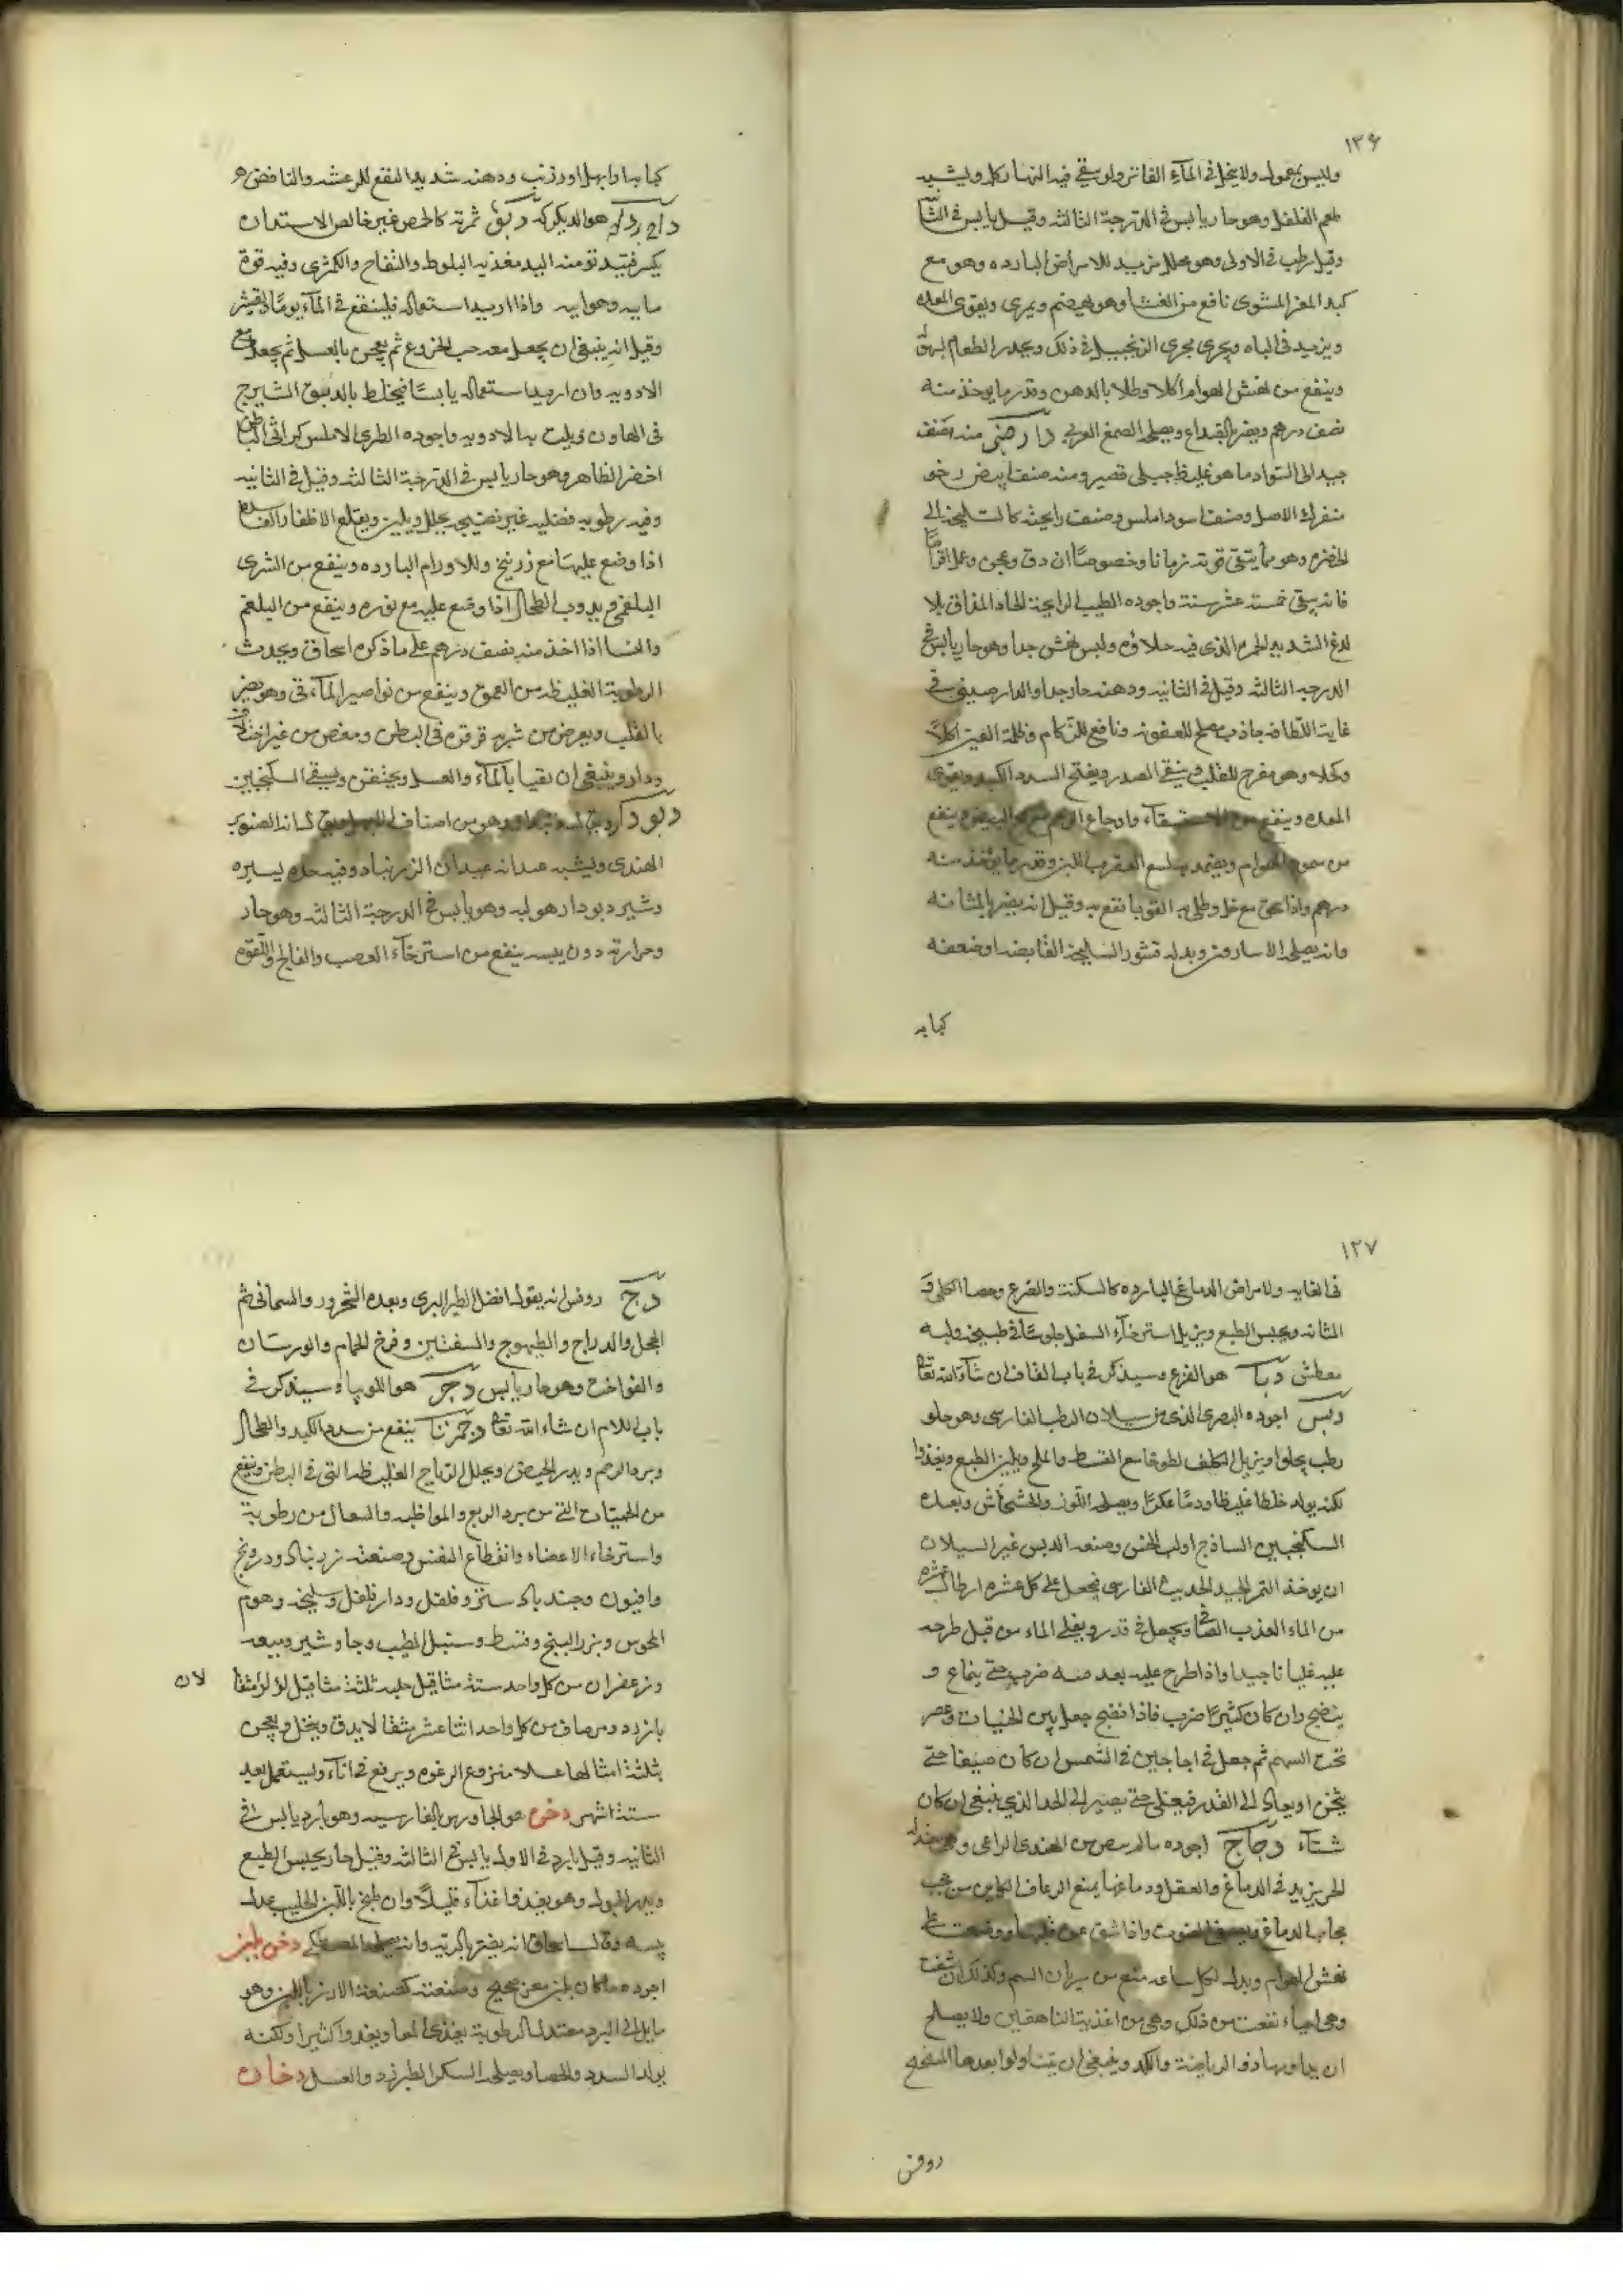 ١٢٦
وليس بمعمول ولا ينحل في المآء الفاتر ولو بقي فيه النهار كله ويشبه
طعم الفلفل وهو حار يابس في الدرجة الثالثه وقيل يابس في الثا
وقيل رطب في الاولى وهو محلل مزيد للامراض البارده وهو مع
كبد المعز المشوى نافع من الغشا وهو يهضم ويمرى ويقوى المعده
ويزيد في الباه ويجرى مجرى الزنجبيل في ذلك ويحدر الطعام بسهو
وينفع من نهش الهوام اكلا وطلا بالدهن وقدر ما يوخذ منه
نصف درهم ويضر بالصداع ويصلحه الصمغ العربي دارصيني منه صنف
جيد الى السواد ما هو غليظ جبلى قصير ومنه صنف ابيض رخو
منفرك الاصل وصنف اسود املس وصنف رايحته كالسليخه الى
الخضره وهو مما يتبقى قوته زمانا وخصوصًا ان دق وعجن وعمل اقراصًا
فانه يبقى خمسة عشر سنة واجوده الطيب الرايحة الحاد المذاق بلا
لدغ الشديد الحمره الذي فيه حلاوه وليس بخش جدا وهو حار يابس في
الدرجه الثالثه وقيل في الثانيه ودهنه حار جدا والدارصيني في
غاية اللطافه جاذب مصلح للعفونه ونافع للزكام وظلمة العين اكلاً
وكحلا وهو مفرح للقلب وينقي الصدر ويفتح السدد الكبد ويقوى
المعده وينفع من الاستسقآء واوجاع الرحم مع مح البيض وينفع
من سموم الهوام ويضمد به لسع العقرب اللبن وقدر ما يوخذ منه
درهم واذا عجن مع خل وطلى به القوبا نفع به وقيل انه يضر بالمثانه
وانه يصلحه الاسارون وبدله قشور السليخة القابضه او ضعفه
كبابه
كبابه او ابهل او رزنب ودهنه شديد النفع للرعشه والنافض
هو الديكركه دبق ثمرته كالحمص غير خالص الاستداره
يكسر فيتد نومنه اليد مغذيه البلوط والتفاح والكمثرى وفيه قوة
ماييه وهواييه واذا اريد استعماله فلينقع في المآء يومًا ويقشر
وقيل انه ينبغي ان يجعل معه حب الخروع ثم يعجن بالعسل ثم يجعل مع
الادويه وان اريد استعماله يابسًا فيخلط بالدبق الشيرج
في الهاون ويلت به الادويه واجوده الطرى الاملس كراثى الباطن
اخضر الظاهر وهو حار يابس في الدرجة الثالثه وقيل في الثانيه
وفيه رطوبه فضليه غير نضيجه يحلل ويلين ويقلع الاظفار الفاسده
اذا وضع عليها مع زرنيخ وللاورام البارده وينفع من الشرى
البلغمي ويذوب الطحال اذا وضع عليه مع نوره وينفع من البلغم
والنسا اذا اخذ منه نصف درهم على ما ذكره اسحاق ويجذب
الرطوبة الغليظه من العمق وينفع من نواصير المآء قى وهو يضر
بالقلب ويعرض من شربه قرقره في البطن ومغص من غير اختلاف
ودار وينبغي ان يقيا بالمآء والعسل ويحتقن ويسقى السكنجبين
وهو من اصناف الابهل
الهندى ويشبه عيدانه عيدان الزرنباد وفيه حده يسيره
وشير ديودار هو لبه وهو يابس في الدرجة الثالثه وهو حار
وحرارته دون يبسه ينفع من استرخآء العصب والفالج واللقوه
١٢٧
في الغايه ولامراض الدماغ البارده كالسكتة والصرع وحصا الكلى و
المثانه ويحبس الطبع ويزيل استرخآء السفل جلوسًا في طبيخه ولبنه
معطش دبا هو القرع وسيذكر في باب القاف ان شآء الله تعالى
دبس اجوده البصرى الذي من سيلان الرطب الفارسي وهو حلو
رطب يجلو ويزيل الكلف لطوخا مع القسط والملح ويلين الطبع ويغذوا
لكنه يولد خلطا غليظا ودمًا عكرًا ويصلحه اللوز والخشخاش وبعده
السكنجبين الساذج او لب الخس وصنعه الدبس غير السيلان
ان يوخذ التمر الجيد الحديث الفارسي فيجعل على كل عشره ارطال عشره
من الماء العذب الصافي ويجعل في قدر ويغلى الماء من قبل طرحه
عليه غليانا جيدا واذا طرح عليه بعد منه ضرب حتى ينماع و
ينضج وان كان كثيرًا ضرب فاذا نضج جعل بين الخنيات وعصر
تحت السهم ثم جعل في اجاجين في الشمس ان كان صيفا حتى
يثخن او يعاد الى القدر فيغلى حتى يصير الى الحد الذي ينبغي ان كان
شتاء دجاج اجوده
يزيد في الدماغ والعقل ودماغها يمنع الرعاف الكاين من حجب
حجاب الدماغ ويصفى الصوت واذا شق عن قلبها ووضعت على
نهش الهوام وبدل كل ساعه منع من سريان السم وكذلك ان شقت
وهي احياء نفعت من ذلك وهي من اغذية الناهقين ولا يصلح
ان يداومها ذو الرياضة والكد وينبغي ان يتناولوا بعدها
روفس
دج روفس انه يقول افضل الطير البرى وبعده الشحرور والسمانى ثم
الحجل والدراج والطيهوج والسفنين وفرخ الحمام والورشان
والفواخت وهو حار يابس دجر هو اللوبيا وسيذكر في
باب اللام ان شاء الله تعالى دحمرثا ينفع من سدد الكبد والطحال
وبرد الرحم ويدر الحيض ويحلل الرياح الغليظه التي في البطن وينفع
من الحميات التي من برد الربع والمواظبه والسعال من رطوبة
واسترخاء الاعضاء وانقطاع النفس وصنعته زرنباد ودرونج
وافيون وجندبادستر وفلفل ودارفلفل وسليخه وهوم
المجوس وبزر البنج وقسط وسنبل الطيب وجاوشير وميعه
وزعفران من كل واحد ستة مثاقيل حلبه ثلثة مثاقيل لولو مثقالان
بارزد ومر صاف من كل واحد اثنا عشر مثقالا يدق وينخل ويعجن
بثلثة امثالها عسلا منزوع الرغوه ويرفع في اناء ويستعمل بعد
ستة اشهر دخن هو الجاورس بالفارسيه وهو بارد يابس في
الثانيه وقيل بارد في الاولى يابس في الثالثه وقيل حار يحبس الطبع
ويدر البول وهو يغذوا غذآء قليلًا وان طبخ باللبن الحليب عدل
يبسه وقال اسحاق انه يضر بالريه وانه يصلحه المصطكى دخن بلبن
اجوده ما كان بلبن معز صحيح وصنعته كصنعة الارز باللبن وهو
مايل الى البرد معتدل الرطوبة يغذى المعا ويغذوا كثيرا ولكنه
يولد السدد والحصا ويصلحه السكر الطبرزد والعسل دخان